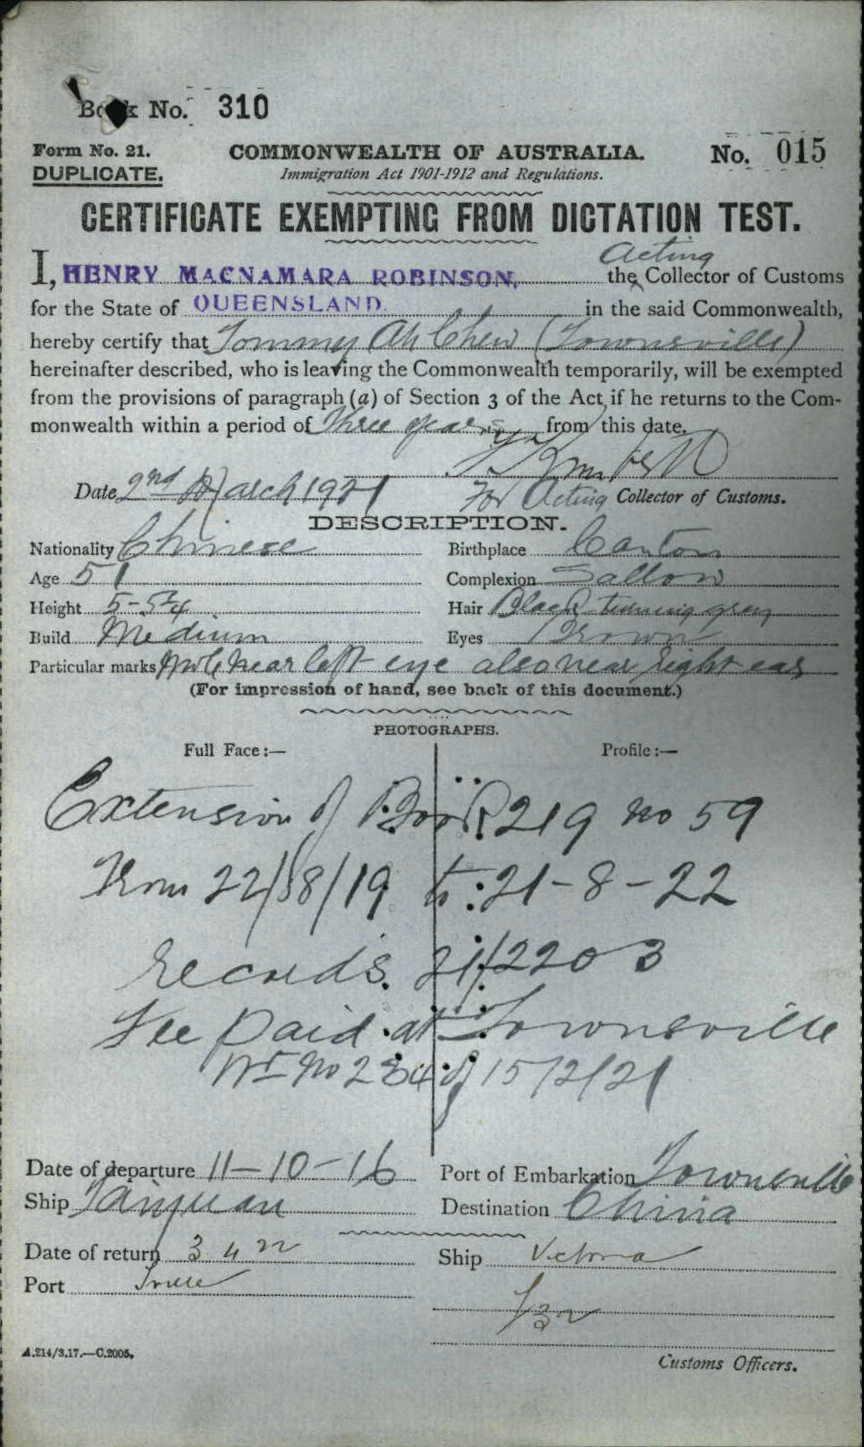 Book No. 310
Form No. 21. COMMONWEALTH OF AUSTRALIA. No. 015
DUPLICATE. Immigration Act 1901-1912 and Regulations.
CERTIFICATE EXEMPTING FROM DICTATION TEST.
Acting
I, HENRY MACNAMARA ROBINSON, the Collector of Customs
for the State of QUEENSLAND. in the said Commonwealth,
hereby certify that Tommy Ah Chew (Townsville)
hereinafter described, who is leaving the Commonwealth temporarily, will be exempted
from the provisions of paragraph (a) of Section 3 of the Act if he returns to the Com-
monwealth within a period of three years from this date.
Date 2nd March 1921 For Acting Collector of Customs.
DESCRIPTION.
Nationality Chinese Birthplace Canton
Age 51 Complexion Sallow
Height 5-5¾ Hair Black turning gray
Build Medium Eyes Brown
Particular marks Mole near left eye also near right ear
(For impression of hand, see back of this document.)
PHOTOGRAPHS.
Full Face:— Profile:—
Extension of Book 219 no 59
From 22/8/19 to 21-8-22
Records 21/2203
Fee paid at Townsville
No 234 of 15/2/21
Date of departure 11-10-16 Port of Embarkation Townsville
Ship Taiyuan Destination China
Date of return 3 4 22 Ship Victoria
Port Tville
A.214/3.17.—C.2005.
Customs Officers.